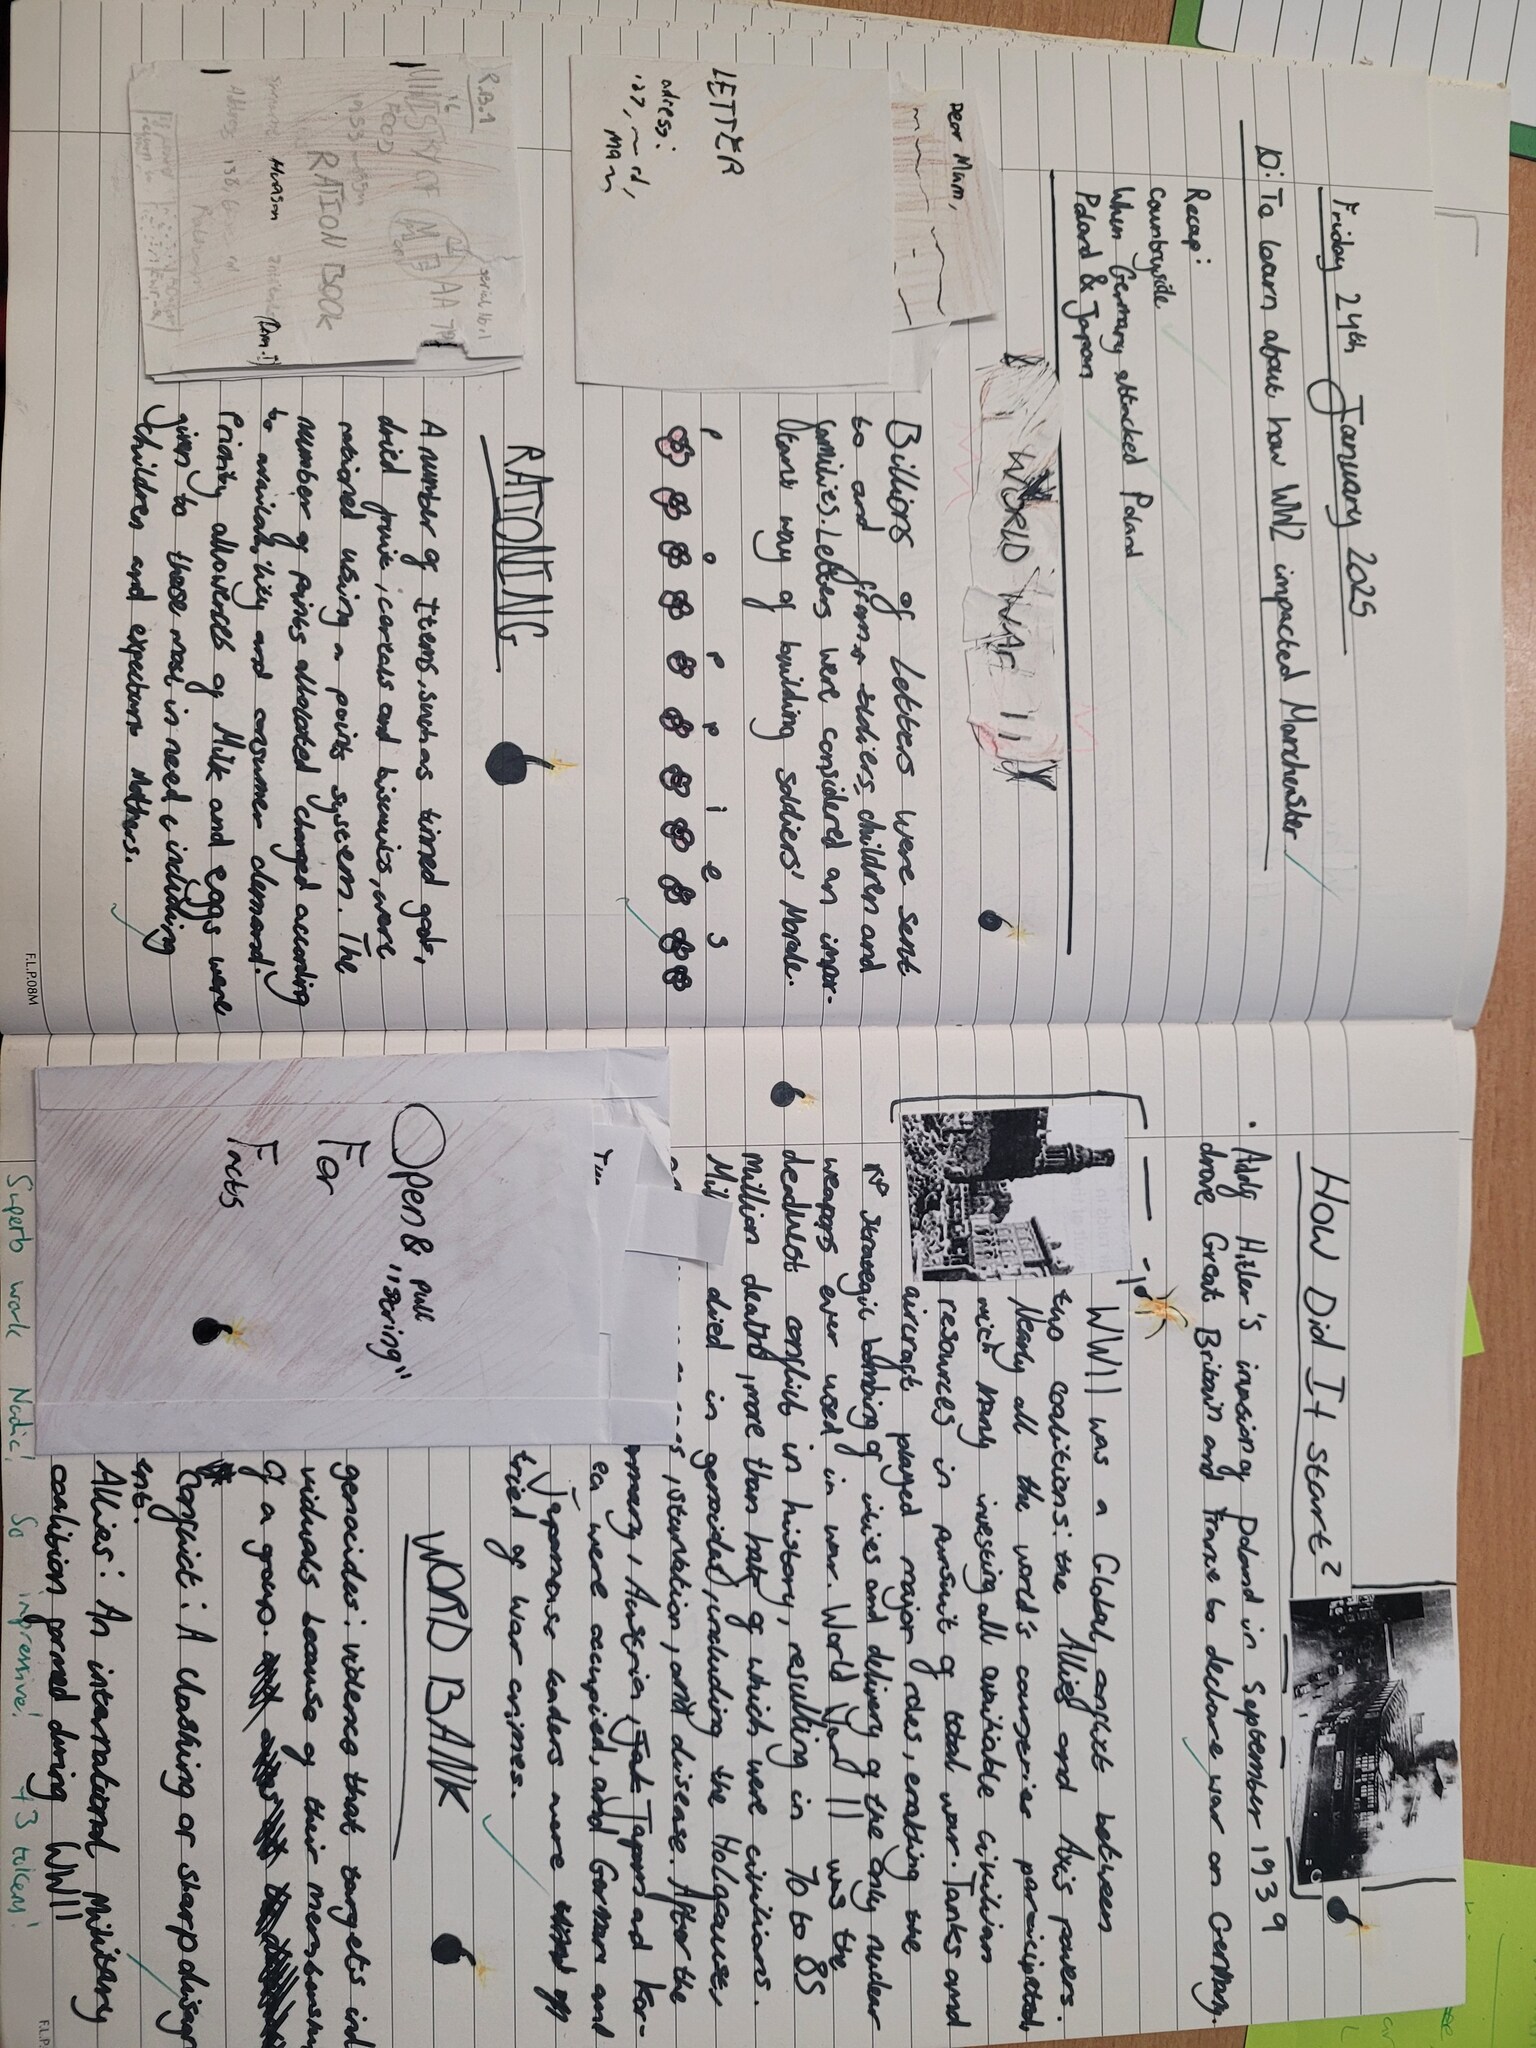 Friday 24th January 2025
LO: To learn about how WW2 impacted Manchester
Recap:
Countryside
When Germany attacked Poland
Poland & Japan
WORLD WAR II
Dear Mum,
LETTER
adress:
127, rd,
Billions of Letters were sent
to and from soldiers, children and
families. Letters were considered an impor-
tant way of building soldiers' Morale.
P o p p i e s
RATIONING
R.B.1
MINISTRY OF
FOOD
1953
RATION BOOK
serial
A number of Items, such as tinned gods,
dried fruit, cereals and biscuits, were
rationed using a points system. The
number of points allocated changed according
to availability and consumer demand.
Priority allowences of Milk and eggs were
given to those most in need including
children and expectant Mothers.
F.L.P.08M
HOW Did It start?
• Adolf Hitler's invasion of Poland in September 1939
drove Great Britain and France to declare war on Germany.
WWII was a Global conflict between
two coalitions: the Allies and Axis powers.
Nearly all the world's countries participated,
with many investing all available civilian
resources in pursuit of total war. Tanks and
aircraft played major roles, enabling the
strategic bombing of cities and delivery of the only nuclear
weapons ever used in war. World War II was the
deadliest conflict in history, resulting in 70 to 85
million deaths, more than half of which were civilians.
Mill died in genocides, including the Holocaust,
starvation, and disease. After the
Austria, Japan and Kor-
ea were occupied, and German and
Japanese leaders were
tried of war crimes.
Open & pull
"string"
For
Facts
WORD BANK
genocides: violence that targets ind
viduals because of their membership
of a group.
Conflict: A clashing or sharp disagr
ent.
Allies: An international military
coalition formed during WWII
Superb work Nadic! So impressive! +3 tokens!
F.L.P.